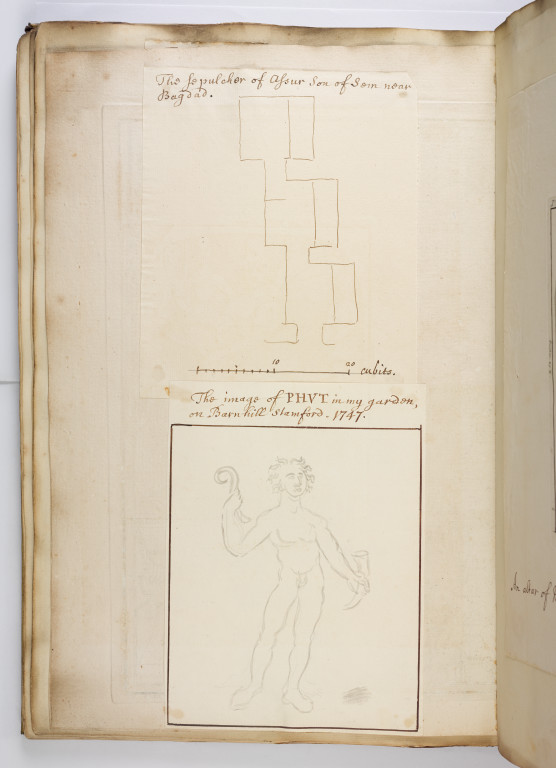 The sepulcher of Assur Son of Sem near
Bagdad.
10
20
cubits.
The image of PHVT in my garden,
on Barnhill Stamford. 1747.
An altar of